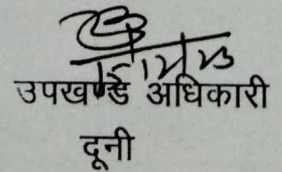 उपखण्ड अधिकारी
दूनी